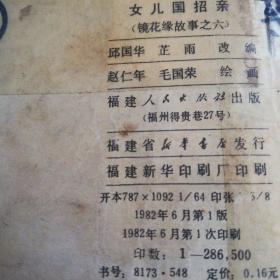 女儿国招亲
（镜花缘故事之六）
邱国华 芷雨 改 编
赵仁年 毛国荣 绘 画
福建人民出版社出版
（福州得贵巷27号）
福建省新华书店发行
福建新华印刷厂印刷
开本787×1092 1/64 印张 5/8
1982年6月第1版
1982年6月第1次印刷
印数：1—286,500
书号：8173·548 定价：0.16元